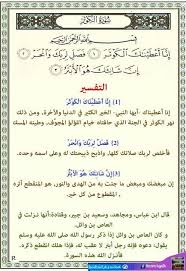 سُورَةُ الكَوْثَر
بِسْمِ اللَّهِ الرَّحْمَٰنِ الرَّحِيمِ
إِنَّا أَعْطَيْنَاكَ الْكَوْثَرَ ١ فَصَلِّ لِرَبِّكَ وَانْحَرْ ٢
إِنَّ شَانِئَكَ هُوَ الْأَبْتَرُ ٣
التفسير
[1} إِنَّا أَعْطَيْنَاكَ الْكَوْثَرَ}
إنا أعطيناك -أيها النبي- الخير الكثير في الدنيا والآخرة، ومن ذلك
نهر الكوثر في الجنة الذي حافتاه خيام اللؤلؤ المجوَّف، وطينه المسك
[2} فَصَلِّ لِرَبِّكَ وَانْحَرْ}
فأخلص لربك صلاتك كلها، واذبح ذبيحتك له وعلى اسمه وحده.
[3} إِنَّ شَانِئَكَ هُوَ الْأَبْتَرُ}
إن مبغضك ومبغض ما جئت به من الهدى والنور، هو المنقطع أثره
المقطوع من كل خير
قال ابن عباس، ومجاهد، وسعيد بن جبير، وقتادة: نزلت في
العاص بن وائل
وكان العاص بن وائل إذا ذكر رسول الله صلى الله عليه وسلم
يقول: دعوه فإنه رجل أبتر لا عقب له، فإذا هلك انقطع ذكره.
فأنزل الله هذه السورة